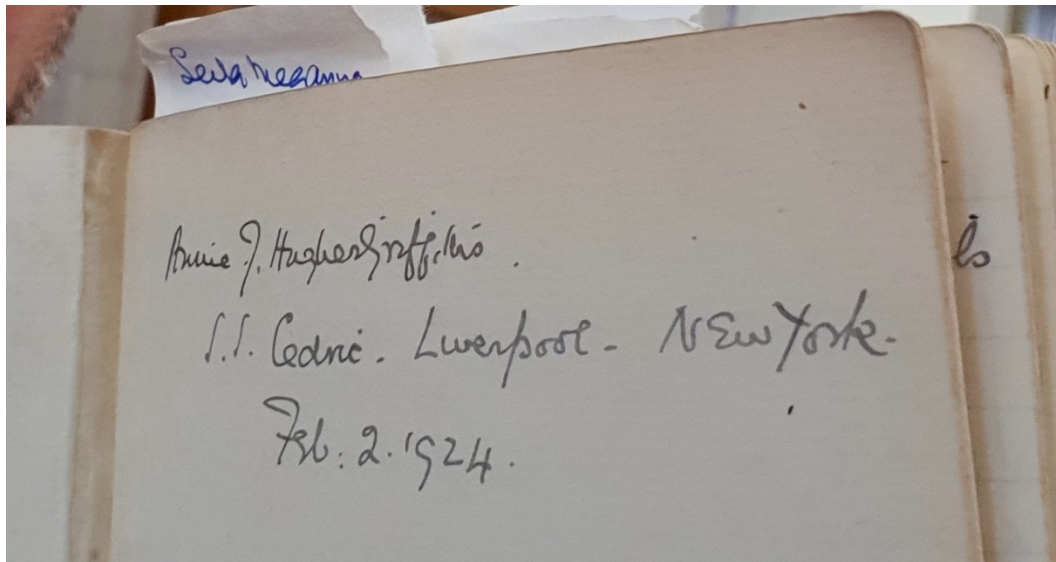 Annie J. Hughes Griffiths.
S.S. Cedric. Liverpool - New York -
Feb: 2. 1924.